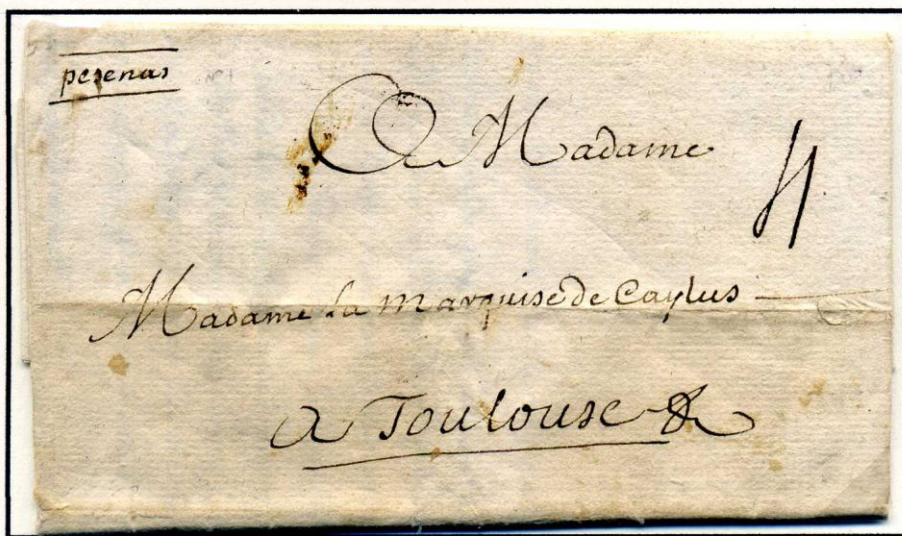 pesenas
A Madame
4
Madame la Marquise de Caylus
a Toulouse &